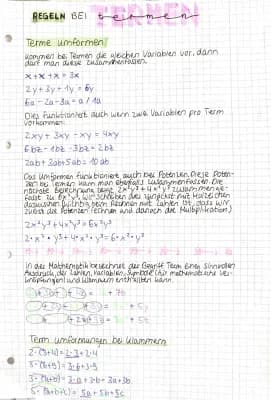 REGELN BEI TERMEN
Terme umformen
Kommen bei Termen die gleichen Variablen vor, dann
darf man diese zusammenfassen.
x + x + x = 3x
2y + 3y + 1y = 6y
6a - 2a - 3a = a / 1a
Dies funktioniert auch wenn zwei Variablen pro Term
vorkommen.
2xy + 3xy - xy = 4xy
6bz - 1bz - 3bz = 2bz
2ab + 3ab + 5ab = 10ab
Das Umformen funktioniert auch bei Potenzen. Diese Poten-
zen bei Termen kann man ebenfalls zusammenfassen. Die
nächste Berechnung zeigt 2x²y³ + 4x²y³ zusammenge-
faßt zu 6x²y³. Wir schreiben das zunächst mal Malzeichen
dazwischen (Wichtig beim Rechnen mit Zahlen ist, dass wir
zuerst die Potenzen rechnen und danach die Multiplikation)
2x²y³ + 4x²y³ = 6x²y³
2·x²·y³ + 4·x²·y³ = 6·x²·y³
In der Mathematik bezeichnet der Begriff Term einen sinnvollen
Ausdruck, der Zahlen, Variablen, Symbole (für mathematische Ver-
knüpfungen) und Klammern enthalten kann.
Term umformungen bei Klammern
2·(3+4) = 2·3 + 2·4
3·(a+b) = 3·a + 3·b = 3a + 3b
5·(a+b+c) = 5a + 5b + 5c